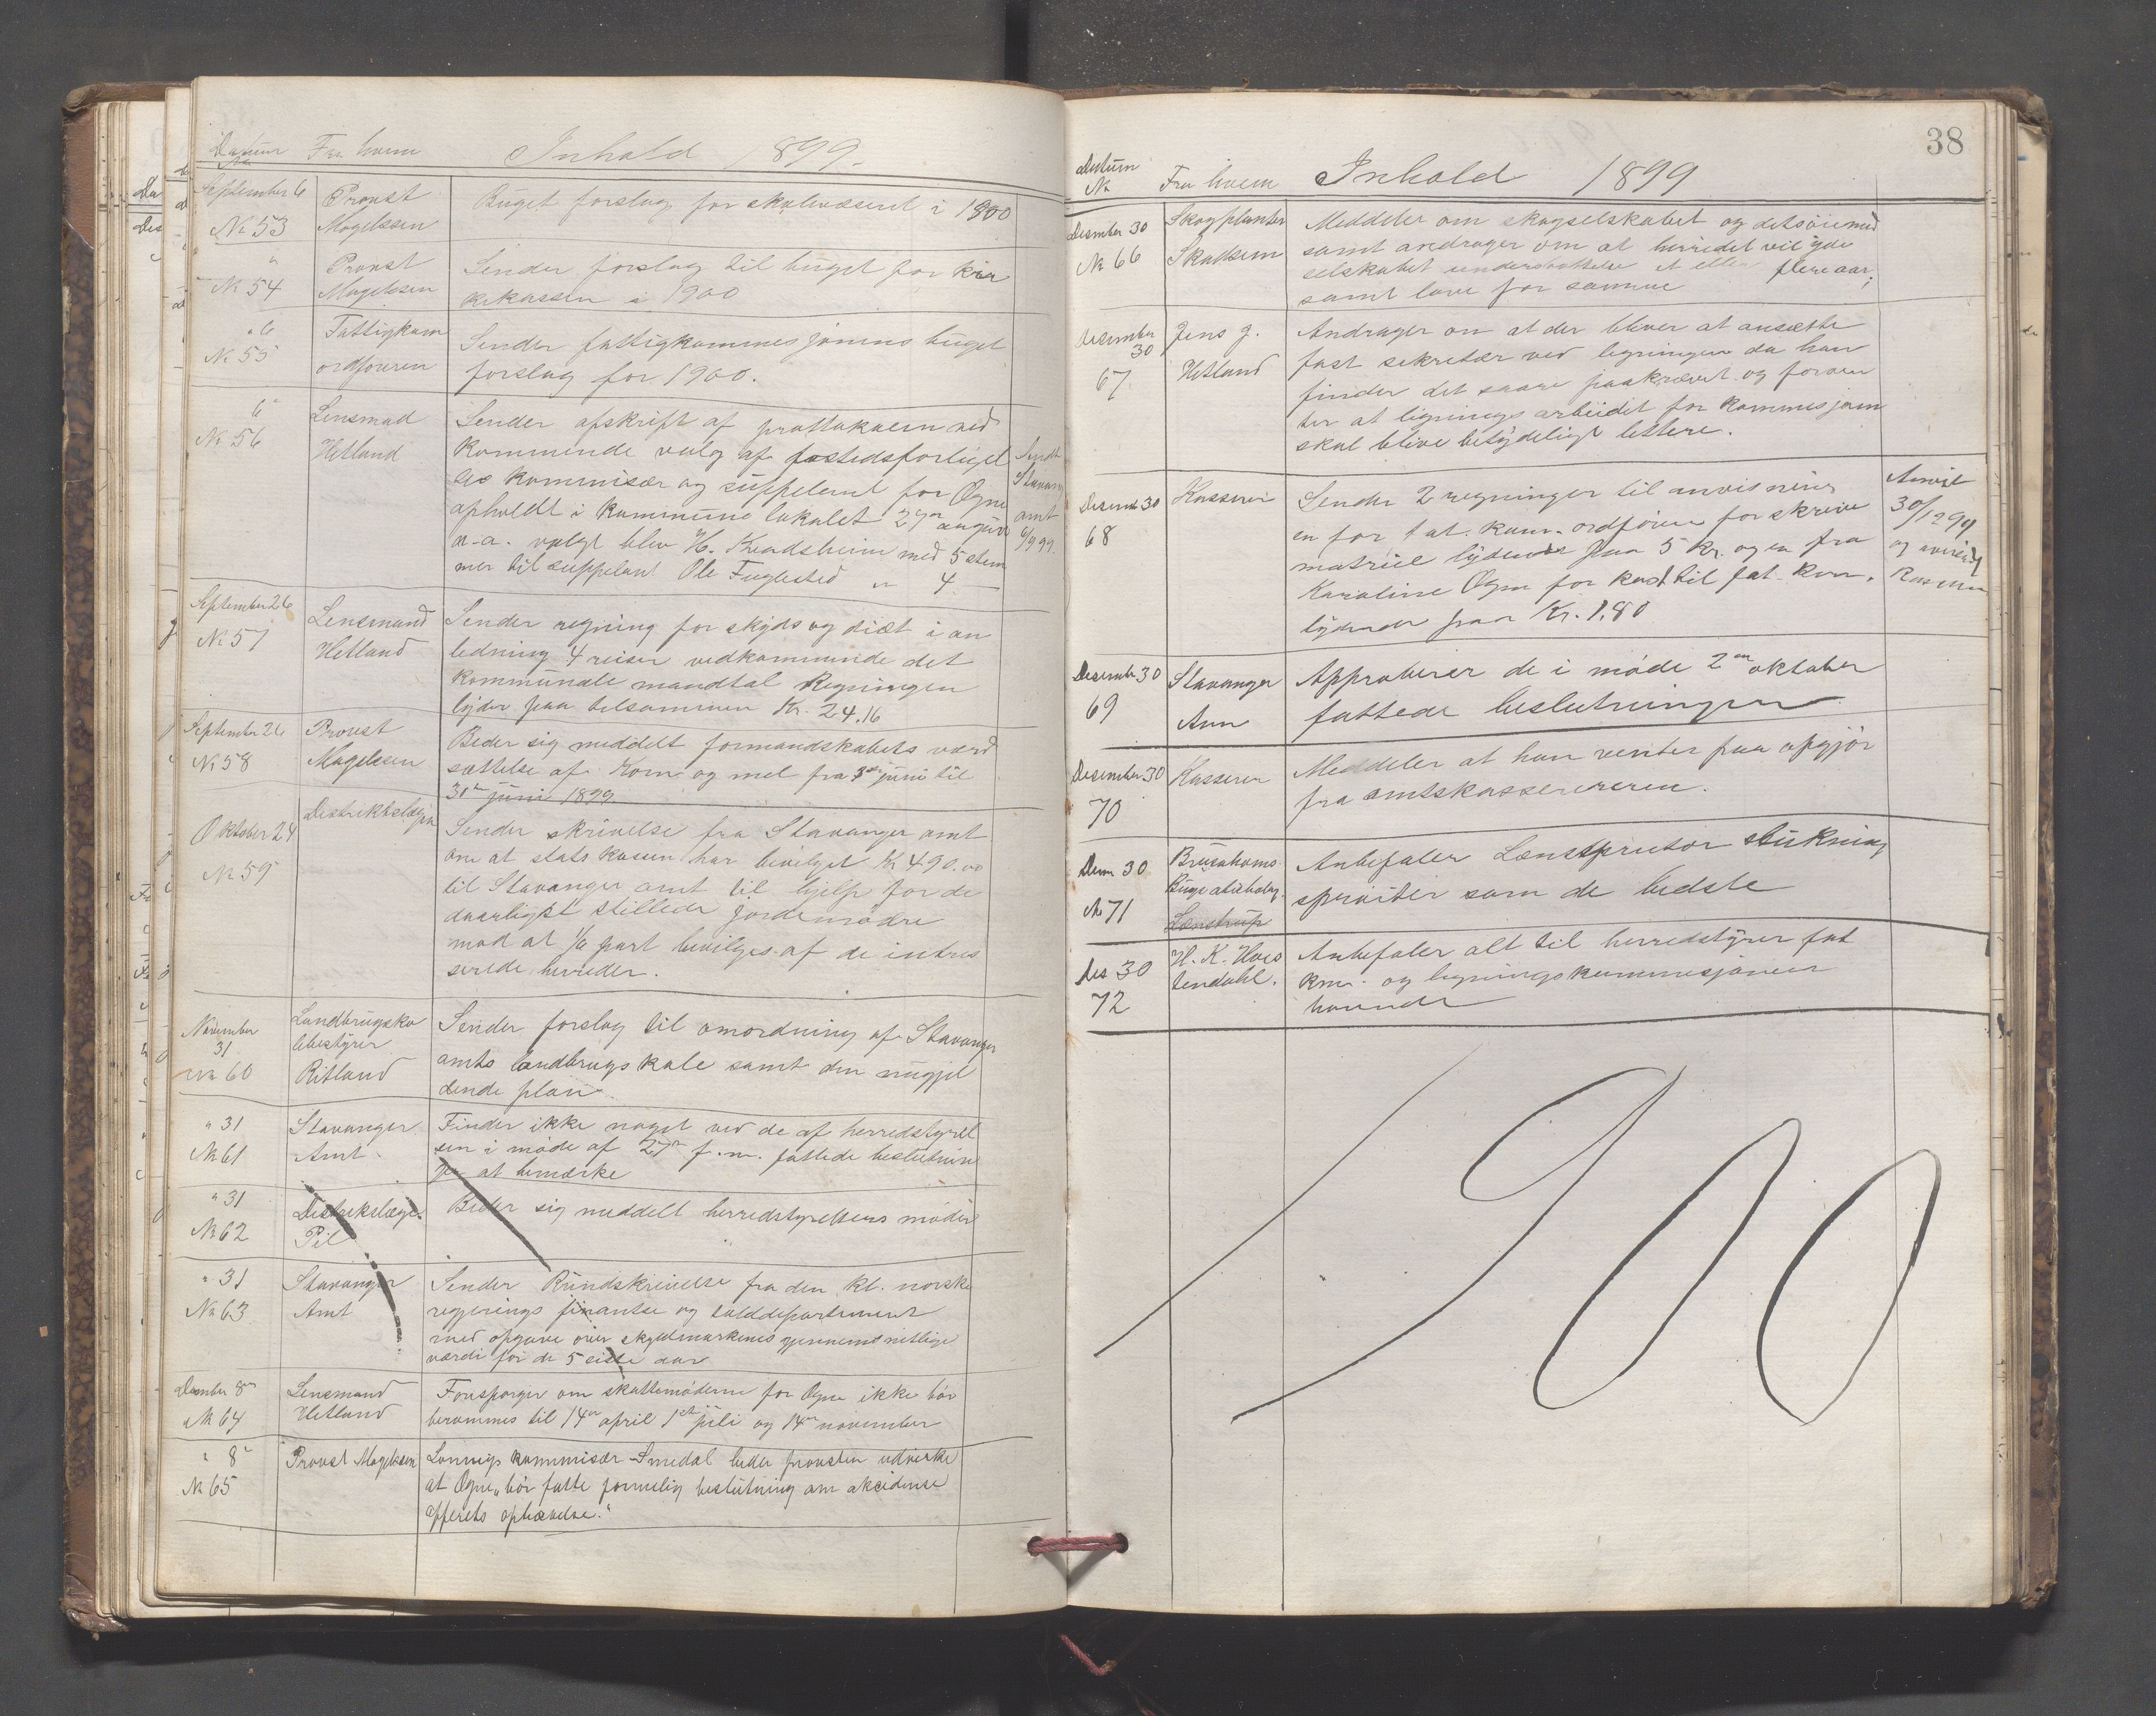 Datum No Fra hvem Inhold 1899.
September 6 Provst Buget forslag for skolevæsenet i 1900
No 53 Mogelssen
" Provst Sender forslag til buget for kir
No 54 Mogelssen kekassen i 1900
" 6 Fattigkom Sender fattigkommisjonins buget
No 55 ordføreren forslag for 1900.
6 Lensmad Sender afskrift af prottokolen ved
No 56 Hetland kommende valg af
kommisær og suppelant for Ogne Stavang
apholdt i kommune lokalet 27de august amt
a.a. valgt blev H. Kvadsheim med 5 stem 6/9 99.
mer til suppelant Ole Fuglested " 4 —
September 26 Lensmand Sender regning for skyds og diæt i an
No 57 Hetland ledning 4 reiser vedkommende det
kommunale mandtal Regningen
lyder paa tilsammen Kr. 24.16
September 26 Provst Beder sig meddelt formandskabets værd
No 58 Mogelssen sættelse af Korn og mel fra juni til
31te juni 1899
Oktober 24 Destriktslægen Sender skrivelse fra Stavanger amt
No 59 om at stats kassen har bevilget Kr 490.00
til Stavanger amt til hjelp for de
daarligst stillede jordemødre
mod at part bevilges af de intres
serede herreder.
November Landbrugsko Sender forslag til omordning af Stavanger
31 lebestyrer amts landbrugskole samt den nugjel
No 60 Ritland dende plan.
" 31 Stavanger Finder ikke noget ved de af herredstyrel
No 61 Amt sen i møde af 27de f.m. fattede beslutnin
ger at bemærke
" 31 Distrikslæge Beder sig meddelt herredstyrelsens møder
No 62 Pil
" 31 Stavanger Sender Rundskrivelse fra den kl. norske
No 63 Amt regjerings finantse og tolddepartement
med opgave over skyldmarkenes gjennemsnitlige
værdi for de 5 siste aar
Desember 8de Lensmand Forespørger om skattemøderne for Ogne ikke bør
No 64 Hetland berammes til 14de april 1ste juli og 14de november
" 8de Provst Mogelssen Lønnings kommisær Smedal beder provsten udvirke
No 65 at Ogne "bør fatte formelig beslutning om aksidense
offerets ophævelse."
38
Datum No Fra hvem Inhold 1899
Desember 30 Skogplanter Meddeler om skogselskabet og detsøiemed
No 66 Skadsem samt andrager om at herredet vil yde
selskabet understøttelse et eller flere aar,
samt love for samme
Desember 30 Jens J. Andrager om at der bliver at ansætte
67 Hetland fast sekretær ved ligningen da han
finder det saare paakrævet og forven
ter at lignings arbeidet for kommisjonen
skal blive betydeligt lettere.
Desemb 30 Kasserer Sender 2 regninger til anvisning Anvist
68 en for fat. kom. ordfører for skrive 30/12 99
matriel lydende paa 5 Kr. og en fra og
Karoline Ogne for kost til fat. kom.
lydende paa Kr. 1.80
Desember 30 Stavanger Approberer de i møde 2den oktober
69 Amt fattede beslutninger
Desember 30 Kasserer Meddeler at han venter paa opgjør
70 fra amtskassereren.
Desem 30 Anbefaler
No 71 sprøiter som de bedste
des 30 H. K. Anbefaler alt til herredstyrer fat
72 tendahl. kom. og ligningskommisjoner
hørende
1900